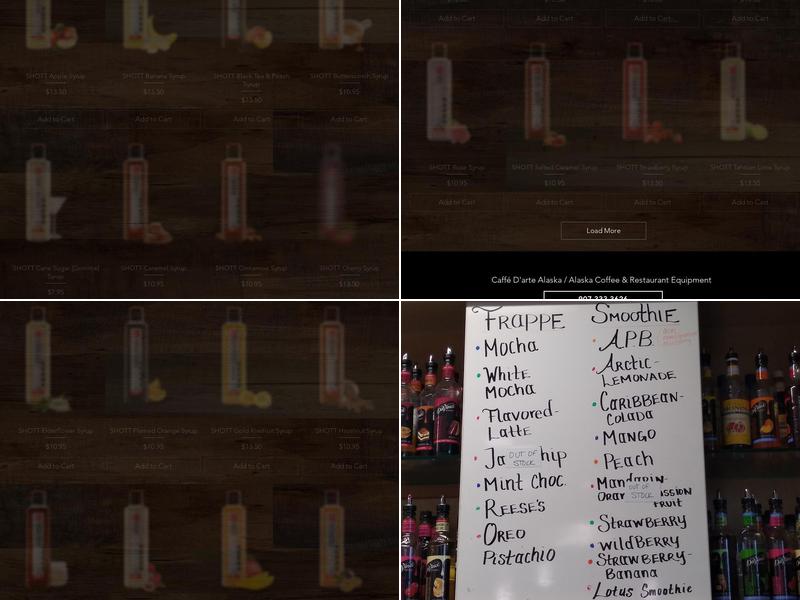 SHOTT Apple Syrup
$13.50
SHOTT Banana Syrup
$13.50
SHOTT Black Tea & Peach
Syrup
$13.50
SHOTT Butterscotch Syrup
$10.95
Add to Cart
Add to Cart
Add to Cart
Add to Cart
SHOTT Cane Sugar (Gomme)
Syrup
$7.95
SHOTT Caramel Syrup
$10.95
SHOTT Cinnamon Syrup
$10.95
SHOTT Cherry Syrup
$13.50
Add to Cart
Add to Cart
Add to Cart
Add to Cart
SHOTT Rose Syrup
$10.95
SHOTT Salted Caramel Syrup
$10.95
SHOTT Strawberry Syrup
$13.50
SHOTT Tahitian Lime Syrup
$13.50
Add to Cart
Add to Cart
Add to Cart
Add to Cart
Load More
Caffé D'arte Alaska / Alaska Coffee & Restaurant Equipment
907.333.3626
SHOTT Elderflower Syrup
$10.95
SHOTT Flamed Orange Syrup
$10.95
SHOTT Gold Kiwifruit Syrup
$13.50
SHOTT Hazelnut Syrup
$10.95
Add to Cart
Add to Cart
Add to Cart
Add to Cart
FRAPPE
Mocha
White
Mocha
Flavored-
Latte
Ja OUT OF STOCK hip
Mint Choc.
REESE'S
OREO
PISTACHIO
SMOOTHIE
A.P.B.
ARCTIC-
LEMONADE
CARIBBEAN-
COLADA
MANGO
PEACH
Mandarin-
Oran OUT OF STOCK ASSION
FRUIT
STRAWBERRY
WILDBERRY
STRAWBERRY-
BANANA
Lotus Smoothie